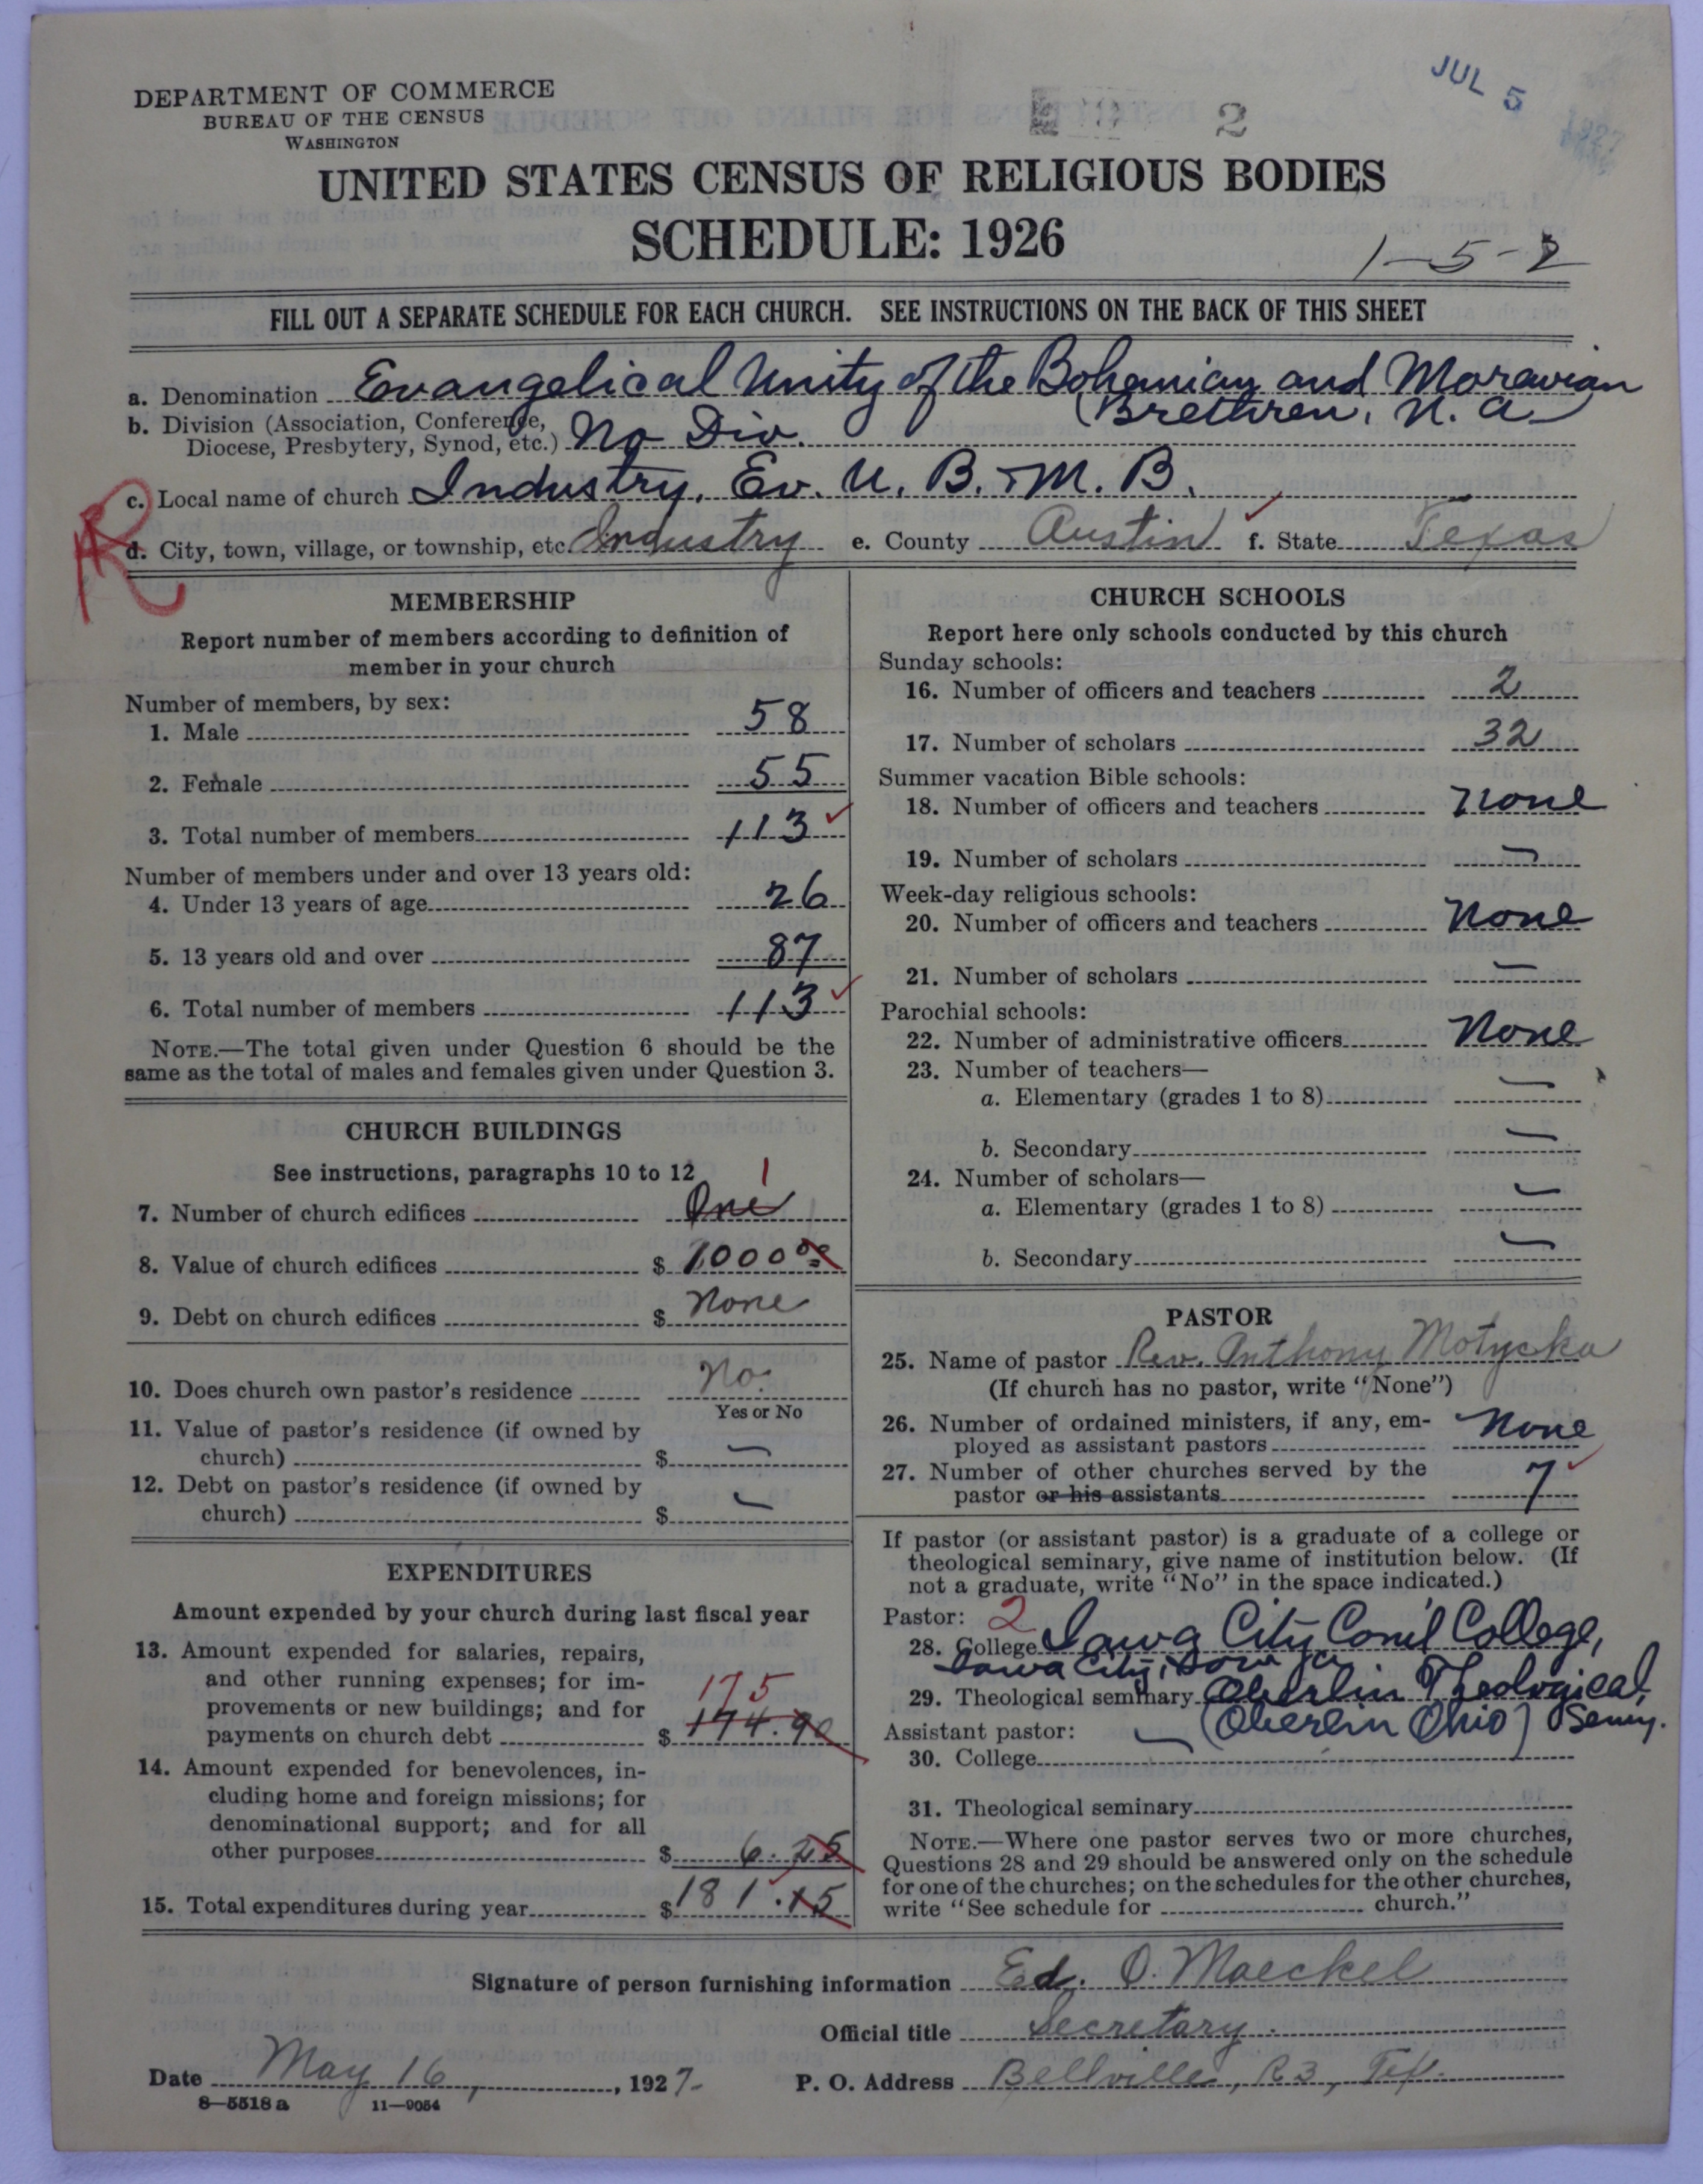 DEPARTMENT OF COMMERCE
BUREAU OF THE CENSUS
WASHINGTON
JUL 5 1927
2
UNITED STATES CENSUS OF RELIGIOUS BODIES
SCHEDULE: 1926
1-5-2
FILL OUT A SEPARATE SCHEDULE FOR EACH CHURCH. SEE INSTRUCTIONS ON THE BACK OF THIS SHEET
a. Denomination Evangelical Unity of the Bohemian and Moravian
Brethren, N. A.
b. Division (Association, Conference,
Diocese, Presbytery, Synod, etc.) No Div.
c. Local name of church Industry, Ev. U. B. & M. B.
d. City, town, village, or township, etc. Industry e. County Austin f. State Texas
MEMBERSHIP
Report number of members according to definition of
member in your church
Number of members, by sex:
1. Male 58
2. Female 55
3. Total number of members 113
Number of members under and over 13 years old:
4. Under 13 years of age 26
5. 13 years old and over 87
6. Total number of members 113
NOTE.—The total given under Question 6 should be the
same as the total of males and females given under Question 3.
CHURCH BUILDINGS
See instructions, paragraphs 10 to 12
1
7. Number of church edifices One
8. Value of church edifices $ 1000 00
9. Debt on church edifices $ None
10. Does church own pastor's residence No.
Yes or No
11. Value of pastor's residence (if owned by
church) $ —
12. Debt on pastor's residence (if owned by
church) $ —
EXPENDITURES
Amount expended by your church during last fiscal year
13. Amount expended for salaries, repairs,
and other running expenses; for im-
provements or new buildings; and for
175
payments on church debt $ 174.90
14. Amount expended for benevolences, in-
cluding home and foreign missions; for
denominational support; and for all
other purposes $ 6.25
15. Total expenditures during year $ 181.15
CHURCH SCHOOLS
Report here only schools conducted by this church
Sunday schools:
16. Number of officers and teachers 2
17. Number of scholars 32
Summer vacation Bible schools:
18. Number of officers and teachers None
19. Number of scholars —
Week-day religious schools:
20. Number of officers and teachers None
21. Number of scholars —
Parochial schools:
22. Number of administrative officers None
23. Number of teachers—
a. Elementary (grades 1 to 8) —
b. Secondary —
24. Number of scholars—
a. Elementary (grades 1 to 8) —
b. Secondary —
PASTOR
25. Name of pastor Rev. Anthony Motycka
(If church has no pastor, write "None")
26. Number of ordained ministers, if any, em-
ployed as assistant pastors None
27. Number of other churches served by the
pastor or his assistants 7
If pastor (or assistant pastor) is a graduate of a college or
theological seminary, give name of institution below. (If
not a graduate, write "No" in the space indicated.)
Pastor: 2
28. College Iowa City Com'l College,
Iowa City, Iowa
29. Theological seminary Oberlin Theological,
Assistant pastor: — (Oberlin Ohio) Semy.
30. College
31. Theological seminary
NOTE.—Where one pastor serves two or more churches,
Questions 28 and 29 should be answered only on the schedule
for one of the churches; on the schedules for the other churches,
write "See schedule for church."
Signature of person furnishing information Ed. O. Maeckel
Official title Secretary.
Date May 16, , 1927. P. O. Address Bellville, R3, Tex.
8—5518 a 11—9054